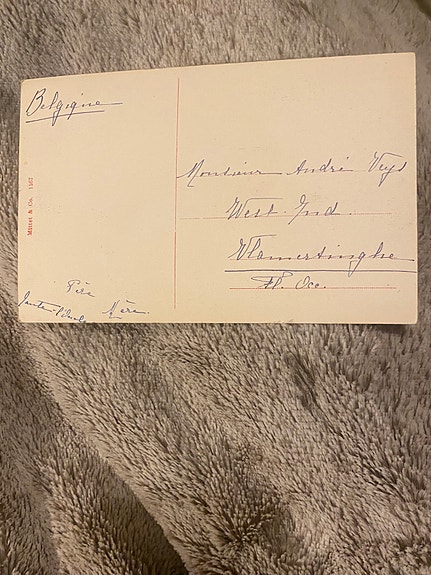 Belgique
Müttet & Co. 1367
Monsieur André Veys
West. Ind.
Vlamertinghe
Fl. Occ.
Père
Mère.